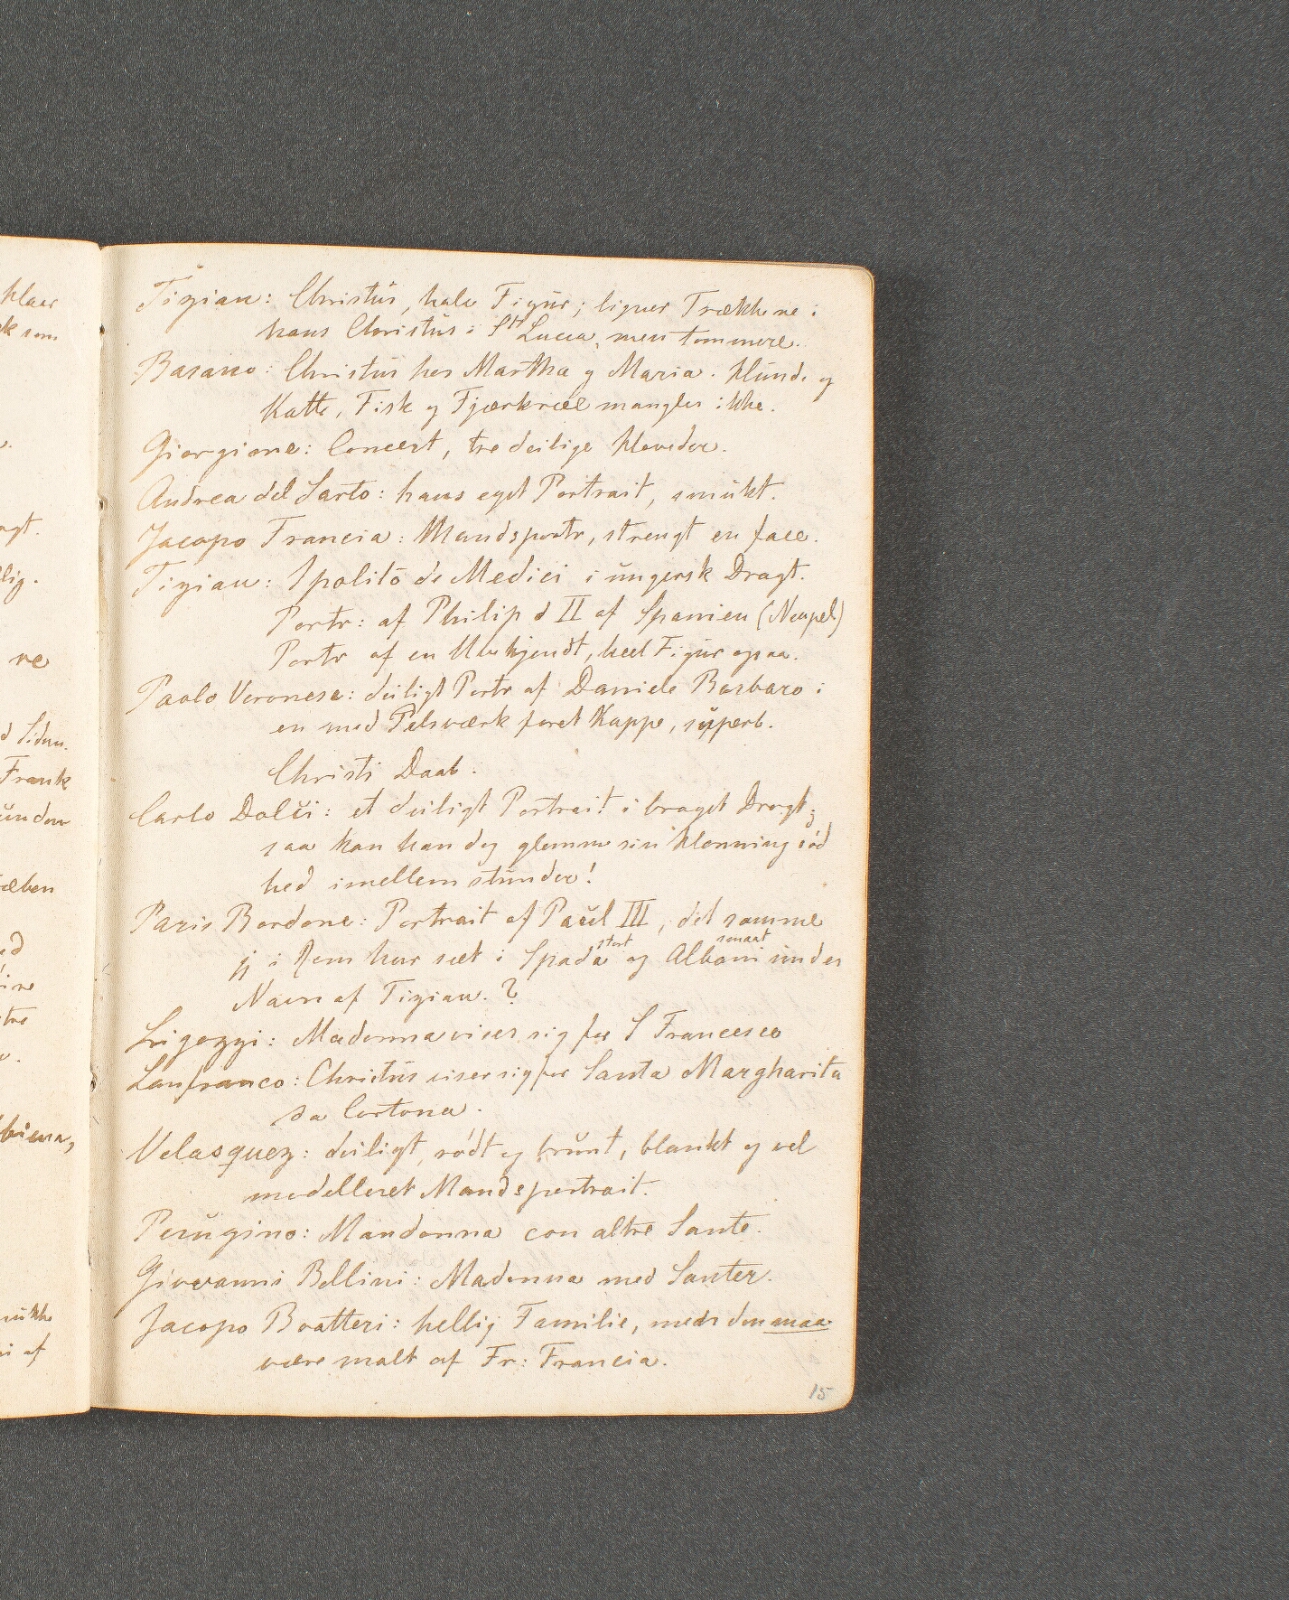 Tizian: Christus, halv Figur; ligner Trækkene i
hans Christus i St Lucca, men tommere.
Basano: Christus hos Martha og Maria. Hunde og
Katte, Fisk og Fjærkræe mangler ikke.
Giorgione: Concert, tre deilige Hoveder.
Andrea del Sarto: hans eget Portrait, smukt.
Jacopo Francia: Mandsportr, strengt en face.
Tizian: Ipolito de Medici i ungersk Dragt.
Portr: af Philip d II af Spanien (Neapel)
Portr af en Ubekjendt, heel Figur ogsaa.
Paolo Veronese: deiligt Portr af Daniele Barbaro i
en med Pelsværk foret Kappe, superb.
Christi Daab.
Carlo Dolci: et deiligt Portrait i broget Dragt;
saa kan han dog glemme sin Honning sød
hed imellem stunder!
Paris Bordone: Portrait af Paul III, det samme
jeg i Rom har seet i Spada stort og Albani smaat under
Navn af Tizian. ?
Ligozzi: Madonna viser sig for S Francesco
Lanfranco: Christus viser sig for Santa Margharita
da Cortona.
Velasquez: deiligt, rødt og brunt, blankt og vel
modelleret Mandsportrait.
Perugino: Mandonna con altre Sante.
Giovanni Bellini: Madonna med Santer.
Jacopo Boatteri: hellig Familie, den maa
være malt af Fr: Francia.
15
klaer
k som
agt.
lig.
ne
d Siden.
Frank
under
æben
ed
tre
af